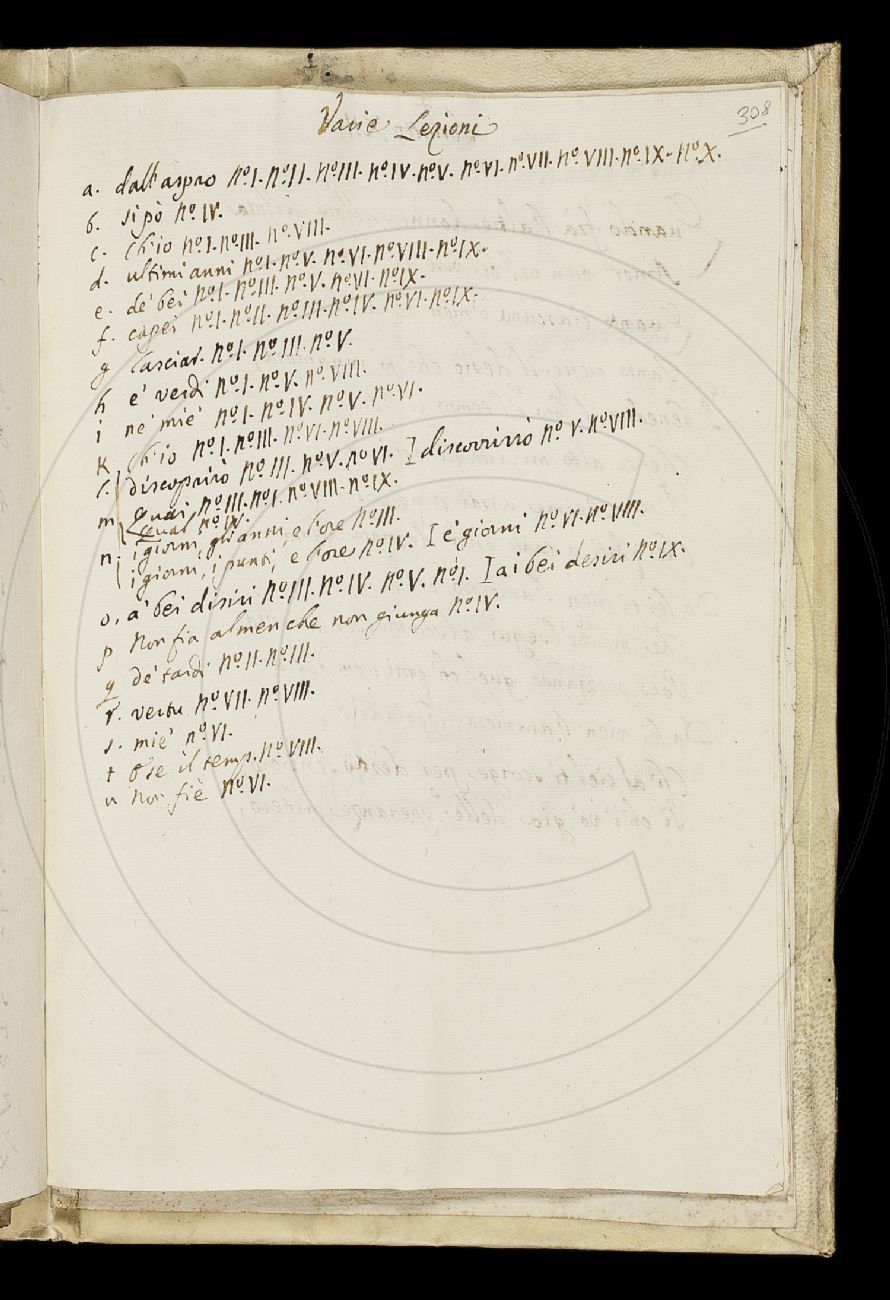 308
Varie Lezioni
a. dall'aspro nº I. nº II. nº III. nº IV. nº V. nº VI. nº VII. nº VIII. nº IX. nº X.
b. si pò nº IV.
c. Ch'io nº I. nº III. nº VIII.
d. ultimi anni nº I. nº V. nº VI. nº VIII. nº IX.
e. de' bei nº I. nº III. nº V. nº VI. nº IX.
f. capei nº I. nº II. nº III. nº IV. nº VI. nº IX.
g lasciar. nº I. nº III. nº V.
h e' verdi nº I. nº V. nº VIII.
i ne' mie' nº I. nº IV. nº V. nº VI.
K Ch'io nº I. nº III. nº VI. nº VIII.
l. discoprirò nº III. nº V. nº VI. I discovrirrò nº V. nº VIII.
m quai nº III. nº I. nº VIII. nº IX.
qual nº IV.
n. i giorni, gli anni, e l'ore nº III.
i giorni, i punti, e l'ore nº IV. I e' giorni nº VI. nº VIII.
o. a' bei disiri nº III. nº IV. nº V. nº I. I a i bei desiri nº IX.
p Non fia almen che non giunga nº IV.
q de' tardi nº II. nº III.
r. vertu nº VII. nº VIII.
s. mie' nº VI.
t E se il temp. nº VIII.
u non fiè nº VI.